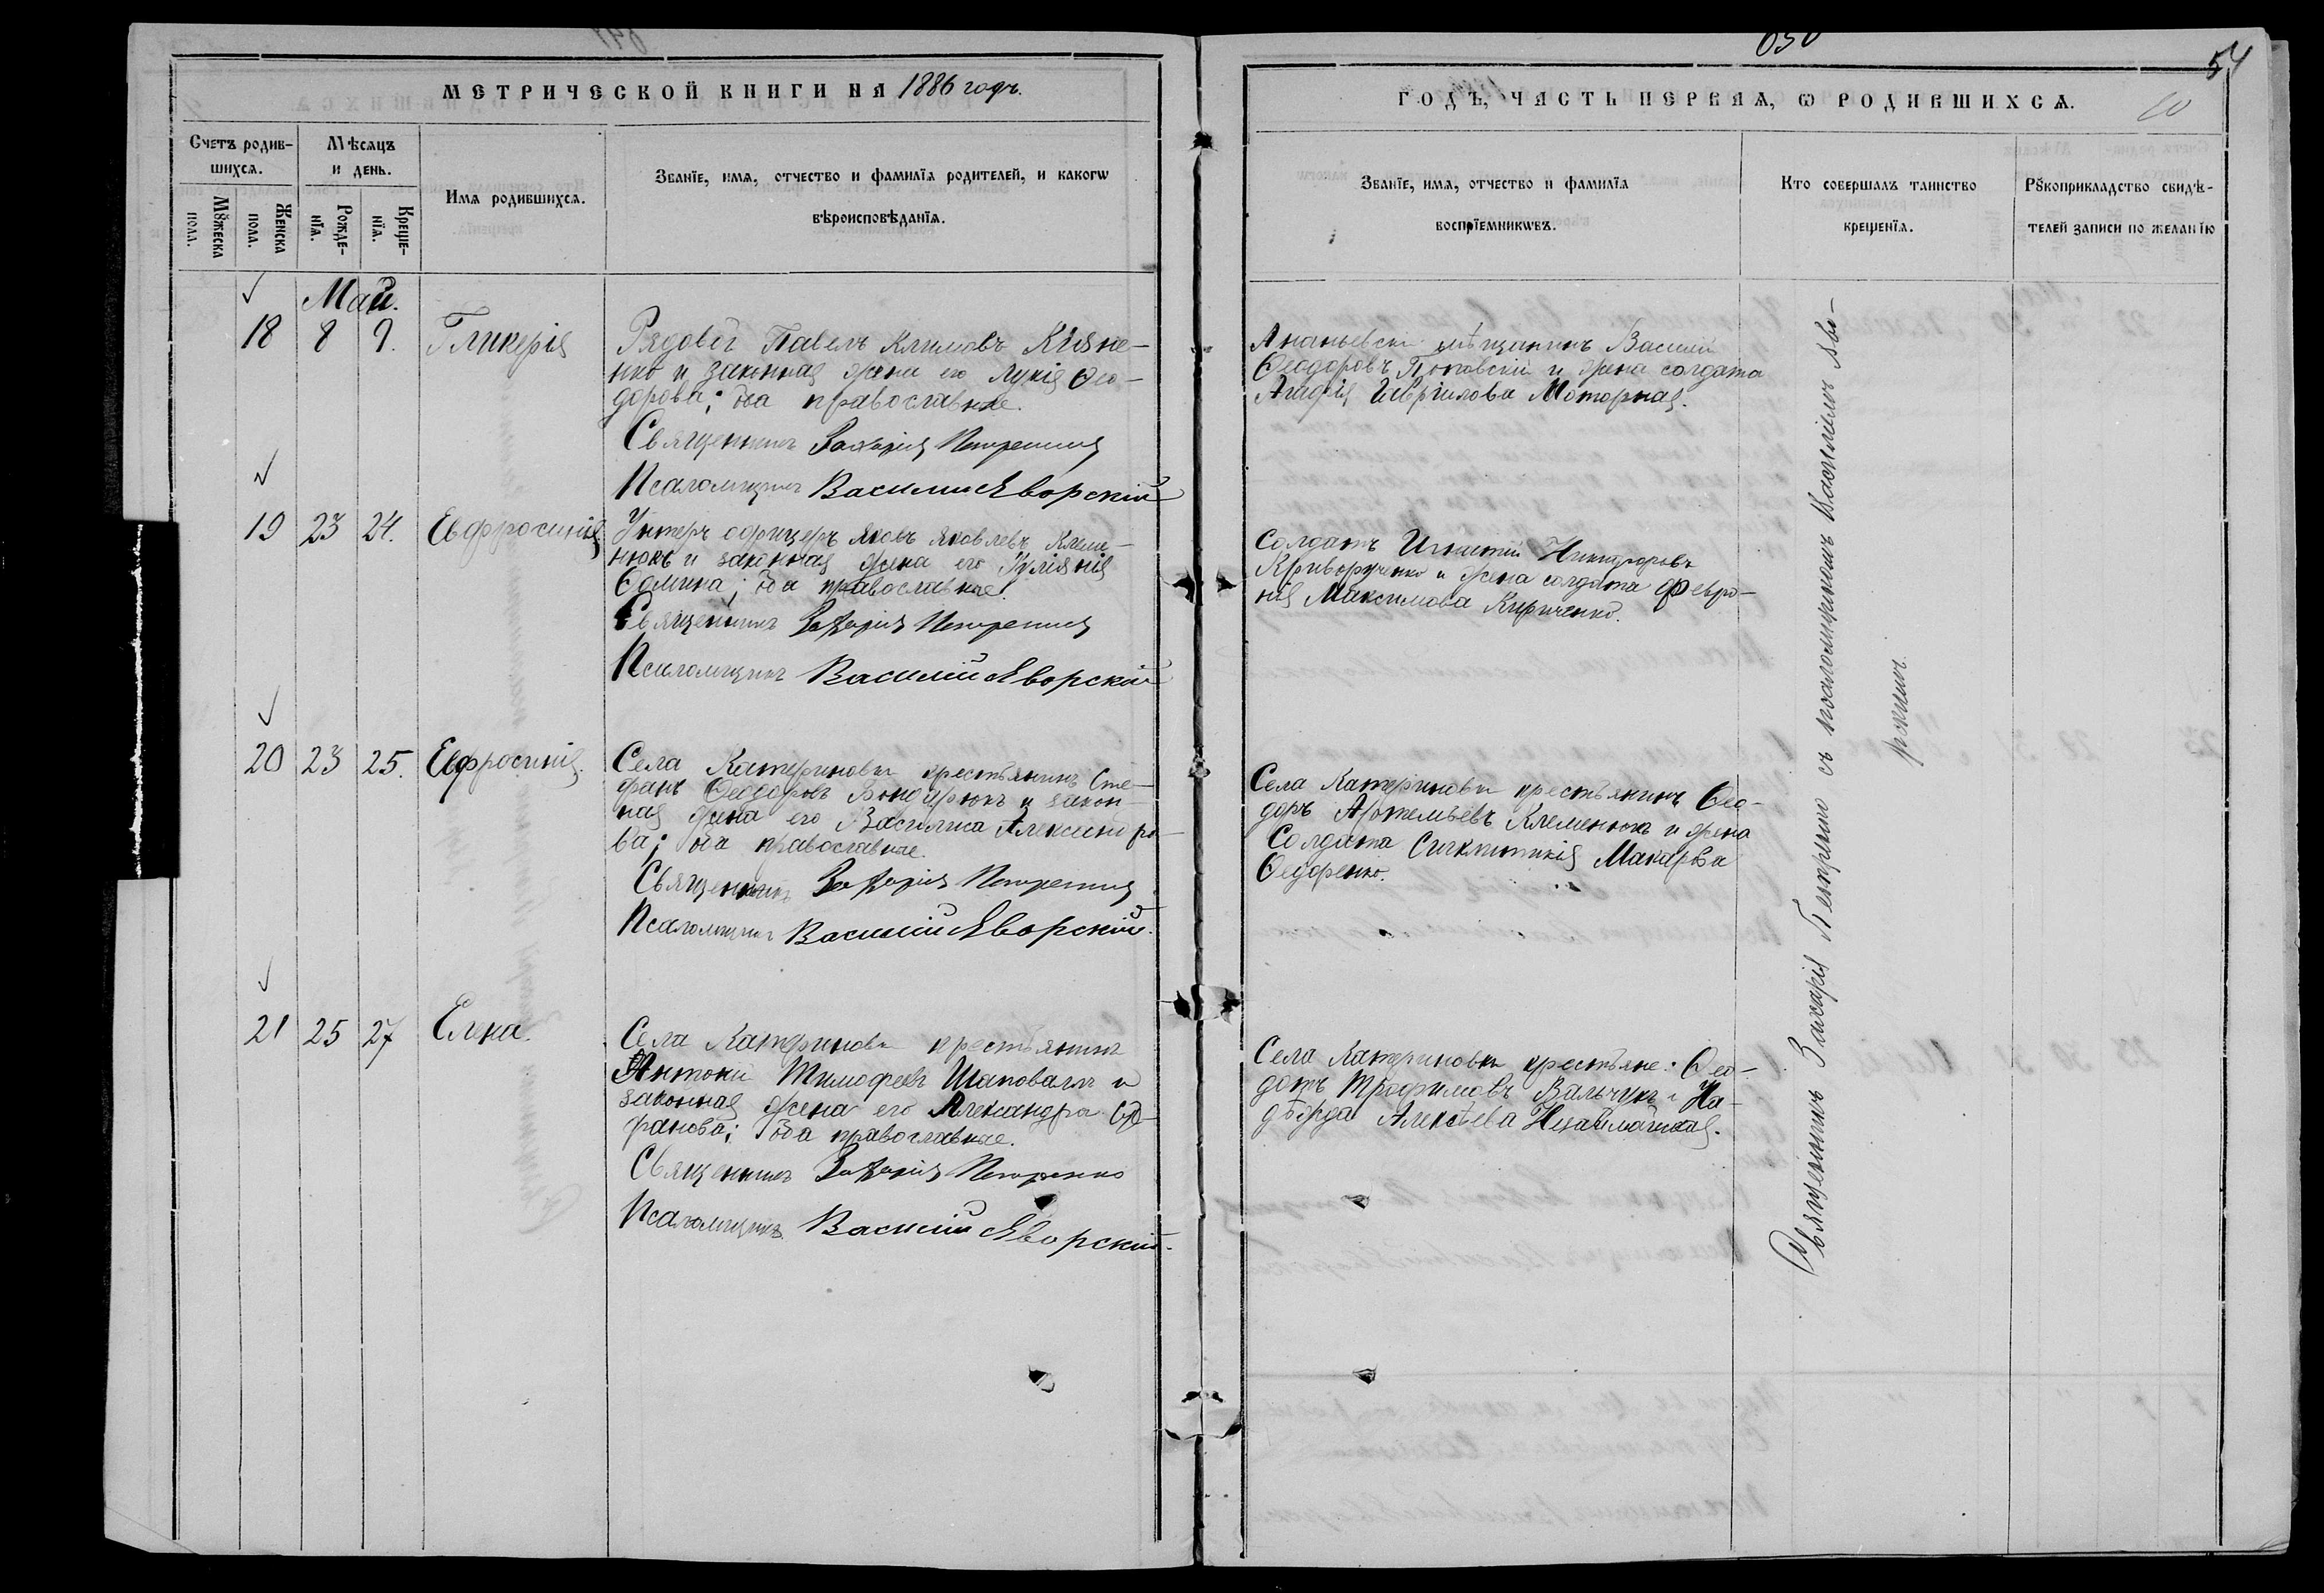 МЕТРИЧЕСКОЙ КНИГИ НА 1886 годъ.
Счетъ родив-
шихся.
Мѣсяцъ
и день.
Мꙋжеска
пола.
Женска
пола.
Рожде-
нїя.
Креще-
нїя.
Имя родившихся.
Званїе, имя, отчество и фамилїя родителей, и какогѡ
вѣроисповѣданїя.
Май.
18 8 9. Гликерія
Рядовой Павелъ Климовъ Княже-
нко и законная жена его Лукія Ѳео-
дорова; оба православные.
Священникъ Захарія
Псаломщикъ Василій Яворскій
19 23 24. Евфросинія
Унтеръ офицеръ Яковъ Яковлевъ Клеме-
нюкъ и законная жена его Іуліанія
Ѳомина; оба православные.
Священникъ Захарія
Псаломщикъ Василій Яворскій
20 23 25. Евфросинія.
Села Катериновки крестьянинъ Сте-
фанъ Ѳеодоровъ Бондарюкъ и закон-
ная жена его Василиса Александро-
ва; оба православные.
Священникъ Захарія
Псаломщикъ Василій Яворскій.
21 25 27 Елена.
Села Катериновки крестьянинъ
Антоній Тимофеевъ Шаповалъ и
законная жена его Александра
фанова; оба православные.
Священникъ Захарія
Псаломщикъ Василій Яворскій.
54
ГОДЪ, ЧАСТЬ ПЕРВАЯ, Ѡ РОДИВШИХСЯ.
Званїе, имя, отчество и фамилїя
воспрїемникѡвъ.
Кто совершалъ таинство
крещенїя.
Рꙋкоприкладство свидѣ-
телей записи по желанїю
Ананьевскій мѣщанинъ Василій
Ѳеодоровъ и жена солдата
Агафія Гавріилова Моторная.
Солдатъ Игнатій Никифоровъ
Криворученко и жена солдата Февро-
нія Максимова Кириченко.
Села Катериновки крестьянинъ Ѳео-
доръ Артемьевъ Клеменюкъ и жена
Солдата Синклитикія Макарова
Ѳедоренко.
Села Катериновки крестьяне: Ѳео-
дотъ Трофимовъ Вальчукъ и На-
дѣжда Алексѣева
Священникъ Захарія съ псаломщикомъ Василіемъ Яво-
рскимъ